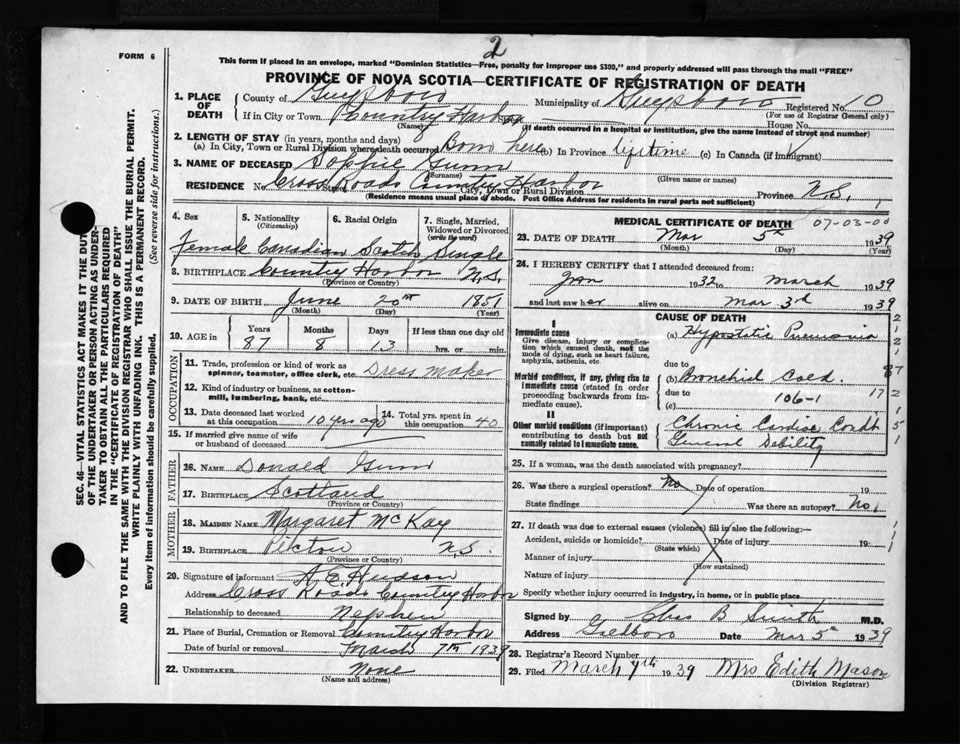 2
FORM 6
This form if placed in an envelope, marked "Dominion Statistics—Free, penalty for improper use $300," and properly addressed will pass through the mail "FREE"
PROVINCE OF NOVA SCOTIA—CERTIFICATE OF REGISTRATION OF DEATH
SEC. 46—VITAL STATISTICS ACT MAKES IT THE DUTY
OF THE UNDERTAKER OR PERSON ACTING AS UNDER-
TAKER TO OBTAIN ALL THE PARTICULARS REQUIRED
IN THE "CERTIFICATE OF REGISTRATION OF DEATH"
AND TO FILE THE SAME WITH THE DIVISION REGISTRAR WHO SHALL ISSUE THE BURIAL PERMIT.
WRITE PLAINLY WITH UNFADING INK. THIS IS A PERMANENT RECORD.
Every item of information should be carefully supplied. (See reverse side for instructions.)
1. PLACE OF DEATH
County of Guysboro Municipality of Guysboro Registered No. 10
(For use of Registrar General only)
If in City or Town Country Harbor House No.
(Name) (If death occurred in a hospital or institution, give the name instead of street and number)
2. LENGTH OF STAY (in years, months and days)
(a) In City, Town or Rural Division where death occurred Born here (b) In Province lifetime (c) In Canada (if immigrant)
3. NAME OF DECEASED Sophie Gunn
(Surname) (Given name or names)
RESIDENCE No. Street Cross Roads Country Harbor Province N.S.
City, Town or Rural Division
(Residence means usual place of abode. Post Office Address for residents in rural parts not sufficient)
4. Sex 5. Nationality (Citizenship) 6. Racial Origin 7. Single, Married, Widowed or Divorced (write the word)
Female Canadian Scotch Single
8. BIRTHPLACE Country Harbor N.S.
(Province or Country)
9. DATE OF BIRTH June 20 1851
(Month) (Day) (Year)
10. AGE in Years Months Days If less than one day old
87 8 13 hrs. or min.
OCCUPATION
11. Trade, profession or kind of work as spinner, teamster, office clerk, etc. Dress maker
12. Kind of industry or business, as cotton-mill, lumbering, bank, etc.
13. Date deceased last worked at this occupation 10 yrs ago 14. Total yrs. spent in this occupation 40
15. If married give name of wife or husband of deceased
FATHER
16. NAME Donald Gunn
17. BIRTHPLACE Scotland
(Province or Country)
MOTHER
18. MAIDEN NAME Margaret McKay
19. BIRTHPLACE Pictou N.S.
(Province or Country)
20. Signature of informant A. E. Hudson
Address Cross Roads Country Harbor
Relationship to deceased Nephew
21. Place of Burial, Cremation or Removal Country Harbor
Date of burial or removal March 7th 1939
22. UNDERTAKER None
(Name and address)
MEDICAL CERTIFICATE OF DEATH 07-03-00
23. DATE OF DEATH Mar 5th 1939
(Month) (Day) (Year)
24. I HEREBY CERTIFY that I attended deceased from:
Jan 1932 to March 1939
and last saw her alive on Mar 3rd 1939
CAUSE OF DEATH
I
Immediate cause
Give disease, injury or complication which caused death, not the mode of dying, such as heart failure, asphyxia, asthenia, etc.
(a) Hypostatic Pneumonia
due to
Morbid conditions, if any, giving rise to immediate cause (stated in order proceeding backwards from immediate cause).
(b) Bronchial Cold.
due to 106-1
(c)
87
17
II
Other morbid conditions (if important) contributing to death but not causally related to immediate cause.
Chronic Cardiac Condt
General Debility
25. If a woman, was the death associated with pregnancy?
26. Was there a surgical operation? No Date of operation 19
State findings Was there an autopsy? No.
27. If death was due to external causes (violence) fill in also the following:—
Accident, suicide or homicide? Date of injury 19
(State which)
Manner of injury
(How sustained)
Nature of injury
Specify whether injury occurred in industry, in home, or in public place
Signed by Chas B Smith M.D.
Address Date Mar 5th 1939
28. Registrar's Record Number
29. Filed March 7th 1939 Mrs Edith Mason
(Division Registrar)